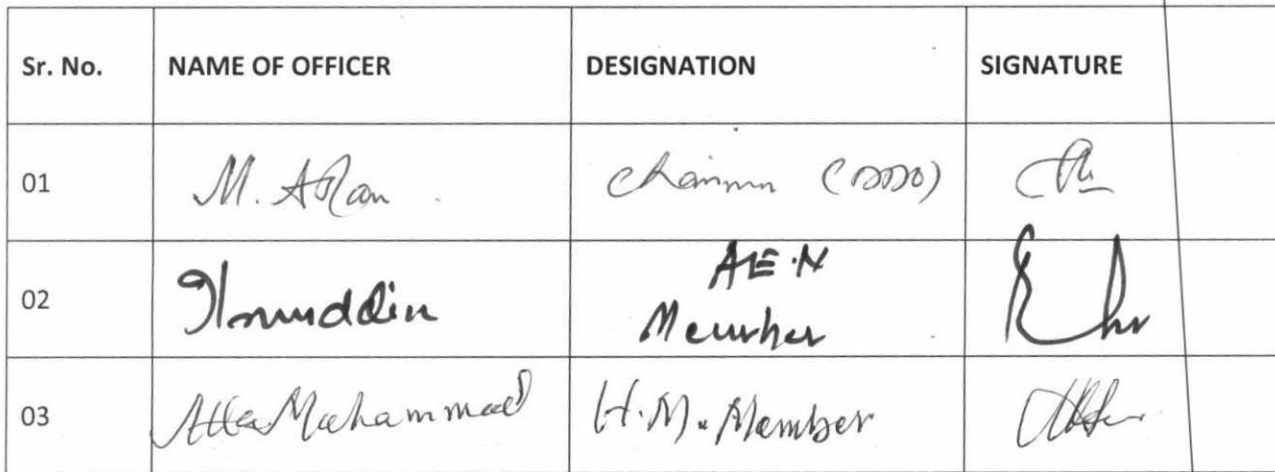 Sr. No. NAME OF OFFICER DESIGNATION SIGNATURE
01 M. Chairman (DDO)
02 AEN
Member
03 Atta Mohammad H.M. Member